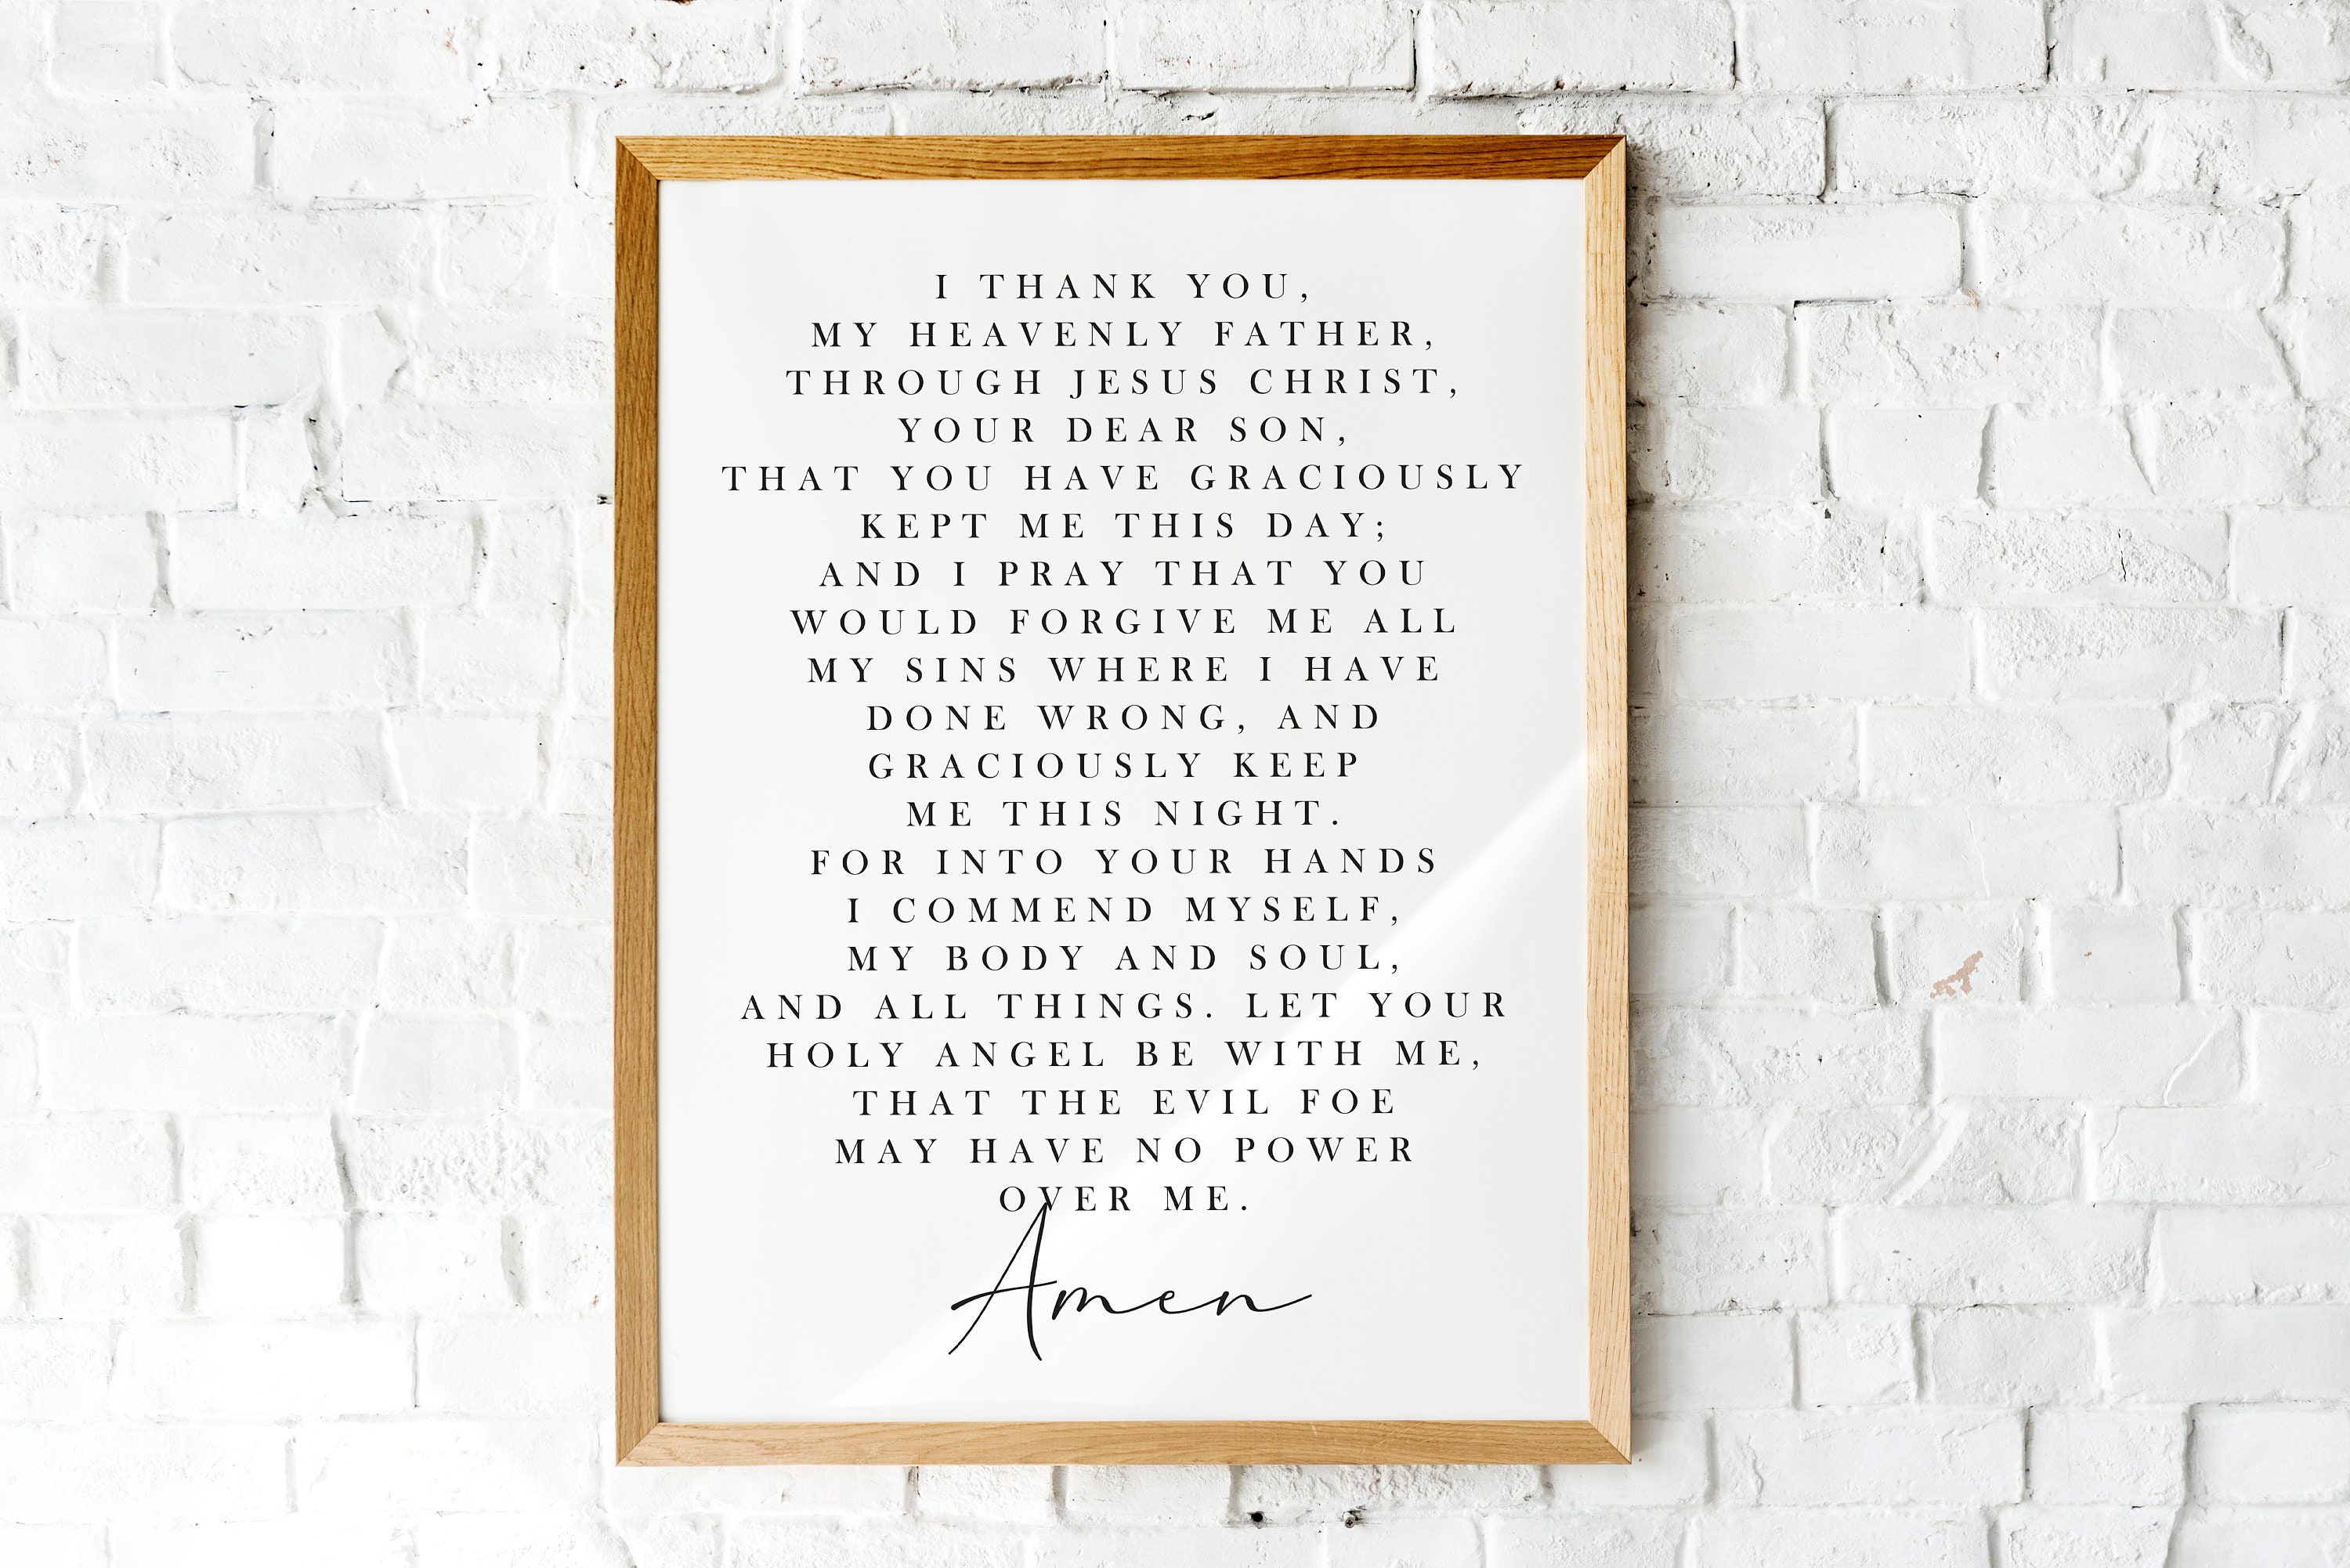 I THANK YOU,
MY HEAVENLY FATHER,
THROUGH JESUS CHRIST,
YOUR DEAR SON,
THAT YOU HAVE GRACIOUSLY
KEPT ME THIS DAY;
AND I PRAY THAT YOU
WOULD FORGIVE ME ALL
MY SINS WHERE I HAVE
DONE WRONG, AND
GRACIOUSLY KEEP
ME THIS NIGHT.
FOR INTO YOUR HANDS
I COMMEND MYSELF,
MY BODY AND SOUL,
AND ALL THINGS. LET YOUR
HOLY ANGEL BE WITH ME,
THAT THE EVIL FOE
MAY HAVE NO POWER
OVER ME.
Amen